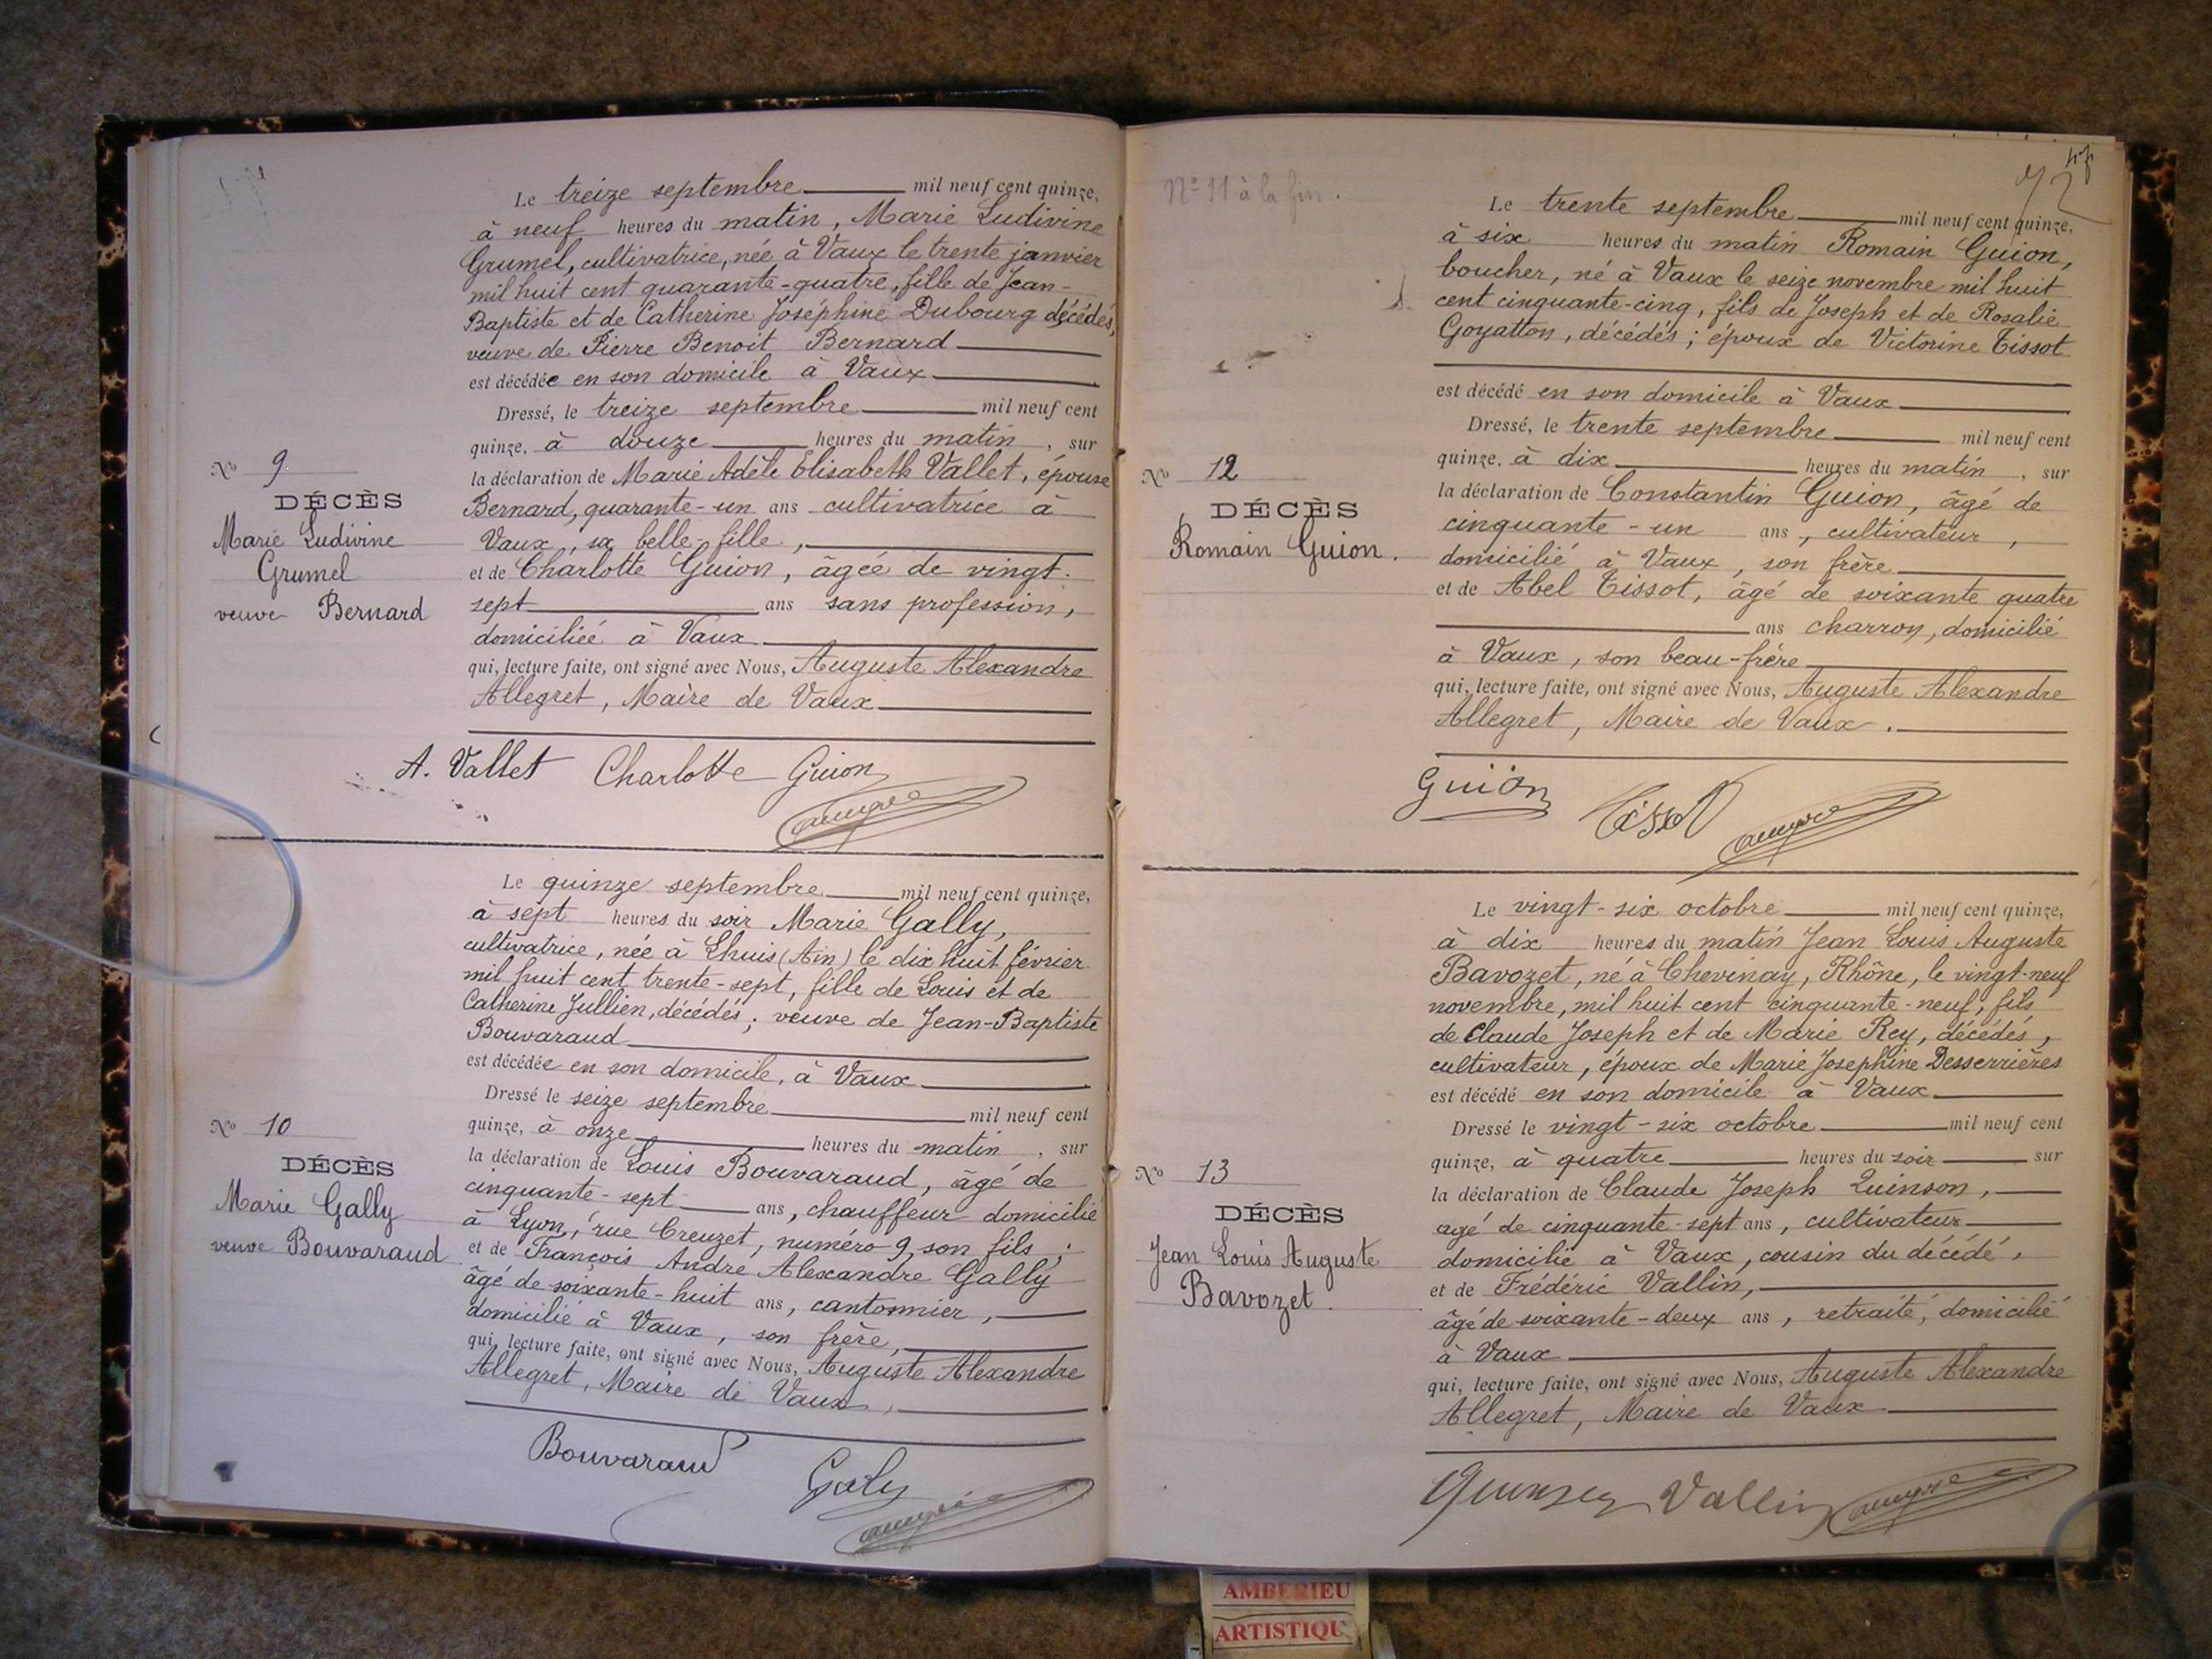 Le treize septembre mil neuf cent quinze,
à neuf heures du matin, Marie Ludivine
Grumel, cultivatrice, née à Vaux le trente janvier
mil huit cent quarante-quatre, fille de Jean-
Baptiste et de Catherine Joséphine Dubourg décédés,
veuve de Pierre Benoit Bernard
est décédée en son domicile à Vaux
Dressé, le treize septembre mil neuf cent
quinze, à douze heures du matin, sur
la déclaration de Marie Adèle Elisabeth Vallet, épouse
Bernard, quarante-un ans cultivatrice à
Vaux, sa belle-fille,
et de Charlotte Guion, âgée de vingt-
sept ans sans profession,
domiciliée à Vaux
qui, lecture faite, ont signé avec Nous, Auguste Alexandre
Allegret, Maire de Vaux
N° 9
DÉCÈS
Marie Ludivine
Grumel
veuve Bernard
A. Vallet Charlotte Guion
Le quinze septembre mil neuf cent quinze,
à sept heures du soir Marie Gally,
cultivatrice, née à Lhuis (Ain) le dix huit février
mil huit cent trente-sept, fille de Louis et de
Catherine Jullien, décédés; veuve de Jean-Baptiste
Bouvaraud
est décédée en son domicile, à Vaux
Dressé le seize septembre mil neuf cent
quinze, à onze heures du matin, sur
la déclaration de Louis Bouvaraud, âgé de
cinquante-sept ans, chauffeur domicilié
à Lyon, rue Creuzet, numéro 9, son fils;
et de François André Alexandre Gally
âgé de soixante-huit ans, cantonnier,
domicilié à Vaux, son frère,
qui, lecture faite, ont signé avec Nous, Auguste Alexandre
Allegret, Maire de Vaux,
N° 10
DÉCÈS
Marie Gally
veuve Bouvaraud
Bouvaraud
Galy
N° 11 à la fin.
72
Le trente septembre mil neuf cent quinze,
à six heures du matin Romain Guion,
boucher, né à Vaux le seize novembre mil huit
cent cinquante-cinq, fils de Joseph et de Rosalie
Goyatton, décédés; époux de Victorine Tissot
est décédé en son domicile à Vaux
Dressé, le trente septembre mil neuf cent
quinze, à dix heures du matin, sur
la déclaration de Constantin Guion, âgé de
cinquante-un ans, cultivateur,
domicilié à Vaux, son frère
et de Abel Tissot, âgé de soixante quatre
ans charron, domicilié
à Vaux, son beau-frère
qui, lecture faite, ont signé avec Nous, Auguste Alexandre
Allegret, Maire de Vaux.
N° 12
DÉCÈS
Romain Guion.
Guion Tissot
Le vingt-six octobre mil neuf cent quinze,
à dix heures du matin Jean Louis Auguste
Bavozet, né à Chevinay, Rhône, le vingt-neuf
novembre, mil huit cent cinquante-neuf, fils
de Claude Joseph et de Marie Rey, décédés,
cultivateur, époux de Marie Josephine Desserrières
est décédé en son domicile à Vaux
Dressé le vingt-six octobre mil neuf cent
quinze, à quatre heures du soir sur
la déclaration de Claude Joseph Quinson,
agé de cinquante-sept ans, cultivateur
domicilié à Vaux, cousin du décédé,
et de Frédéric Vallin,
âgé de soixante-deux ans, retraité, domicilié
à Vaux
qui, lecture faite, ont signé avec Nous, Auguste Alexandre
Allegret, Maire de Vaux
N° 13
DÉCÈS
Jean Louis Auguste
Bavozet.
Quinson Vallin
AMBERIEU
ARTISTIQU